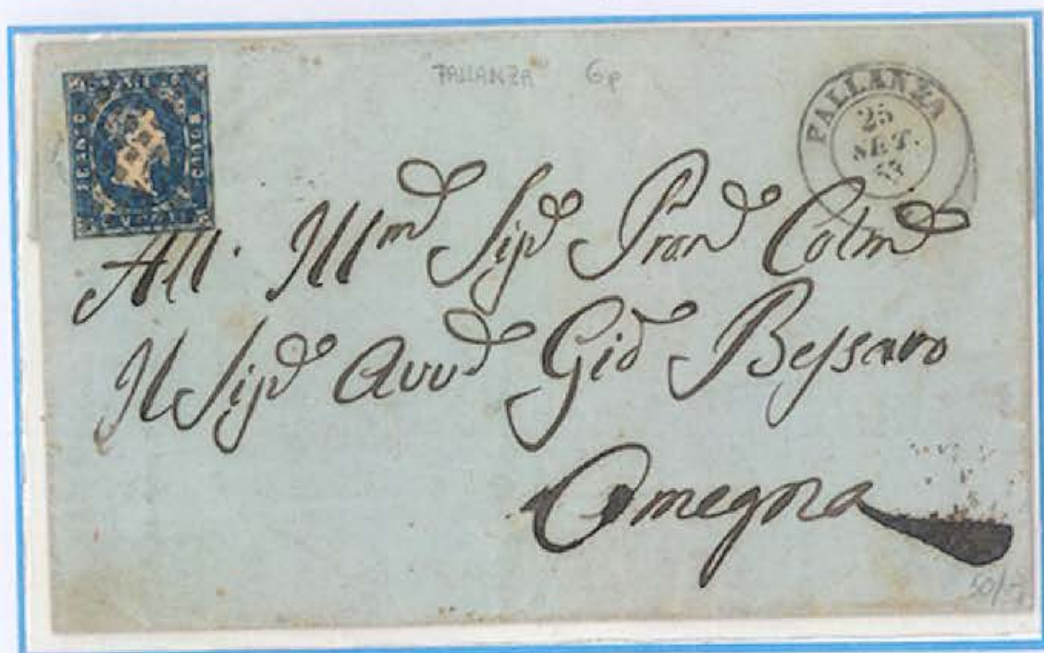 PALLANZA 6p
PALLANZA
25
SET.
53
All. Ill.mo Sig.e Pron Colmo
Il Sig.e Avv.o Gio Bessaro
Omegna
50/